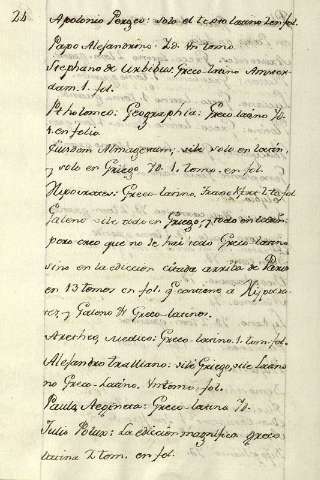 24
Apolonio Pergeo: solo el texto latino 1. en fol.
Papo Alejandrino: Id. Un tomo
Stephano de Urbibus: Greco-latino Amster-
dam. 1. fol.
Ptholomeo: Geographia: Greco-latino Id.
1. en folio
Eiusdem Almagestum, sile solo en latin,
y solo en Griego Id. 1. tom. en fol.
Hipocrates: Greco-latino, 2 t. fol
Galeno sile todo en Griego, y todo en latin,
pero creo que no le hai todo Greco-latino
sino en la edicion citada arriba de Paris
en 13 tomos en fol. q contiene a Hippocra-
tes, y Galeno Greco-latinos.
Aretheo, Medico: Greco-latino. 1. tom. fol.
Alejandro Tralliano: sile Griego, sile Latino
no Greco-Latino. Un tomo fol.
Paulo Aegineta: Greco-latino Id.
Julio Polux: La edicion magnifica greco
latina 2 tom. en fol.